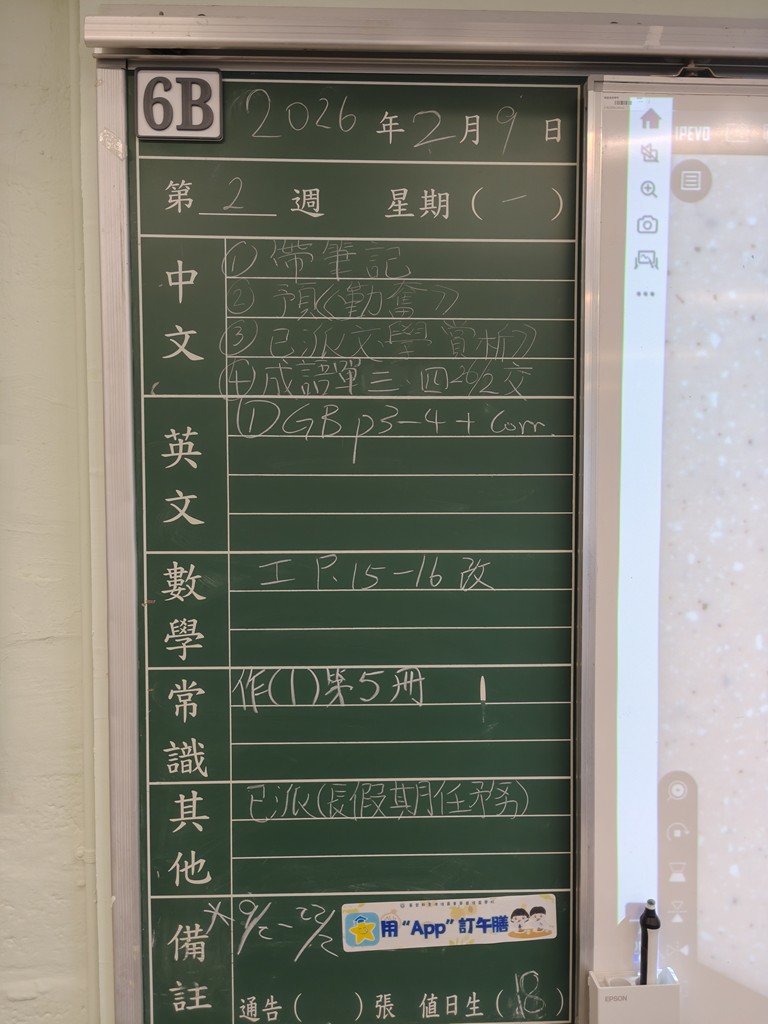 6B 2026年2月9日
第2週 星期(一)
中文
① 帶筆記
② 預《勤奮》
③ 已派文學賞析》
④ 成語單三、四 26/2交
英文
① GB p3-4 + Corr.
數學
工 P.15-16 改
常識
作(1)第5冊
其他
已派(長假期任務)
備註
9/2-22/2
用“App”訂午膳
通告( )張 值日生(18)
IPEVO
EPSON